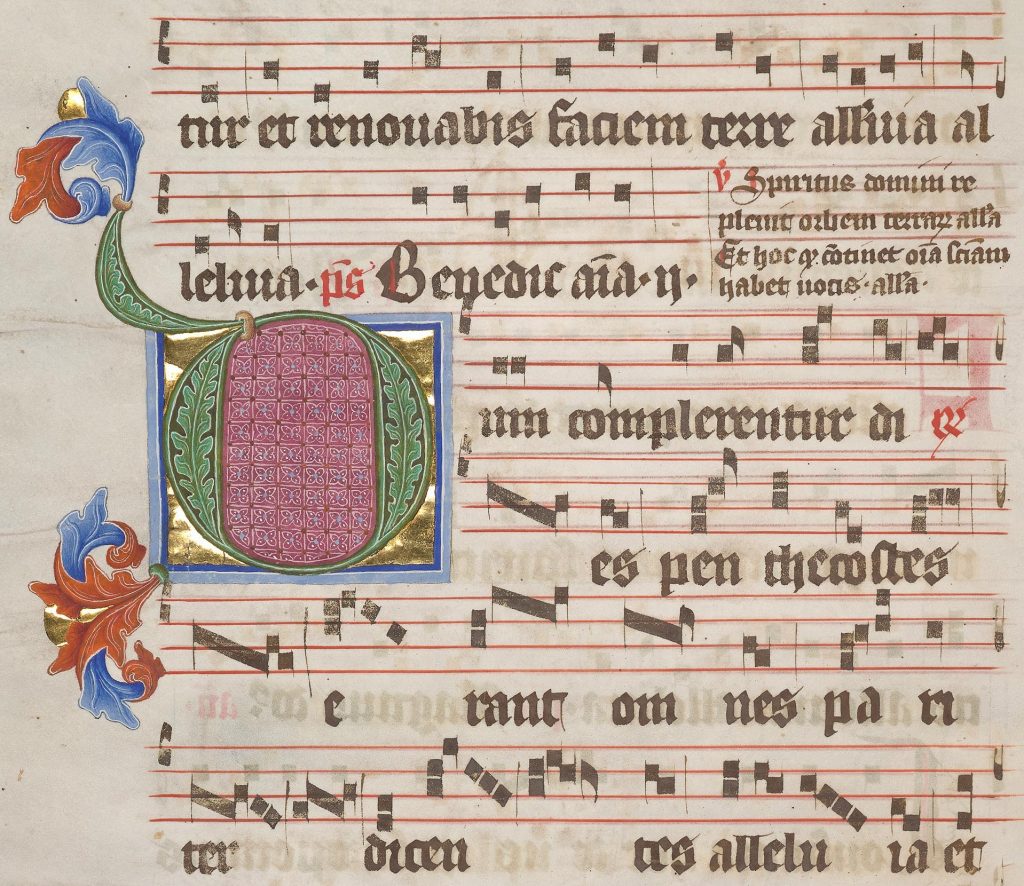 tur et renovabis faciem terre all'uia al
leluia. ps Benedic aĩa. ij.
℣ Spiritus domini re
plevit orbem terrarꝝ all'a
Et hoc qꝫ cõtinet oĩa sciam
habet vocis. all'a.
Dum complerentur di ℟
es pen thecostes
e rant om nes pa ri
ter dicen tes allelu ia et